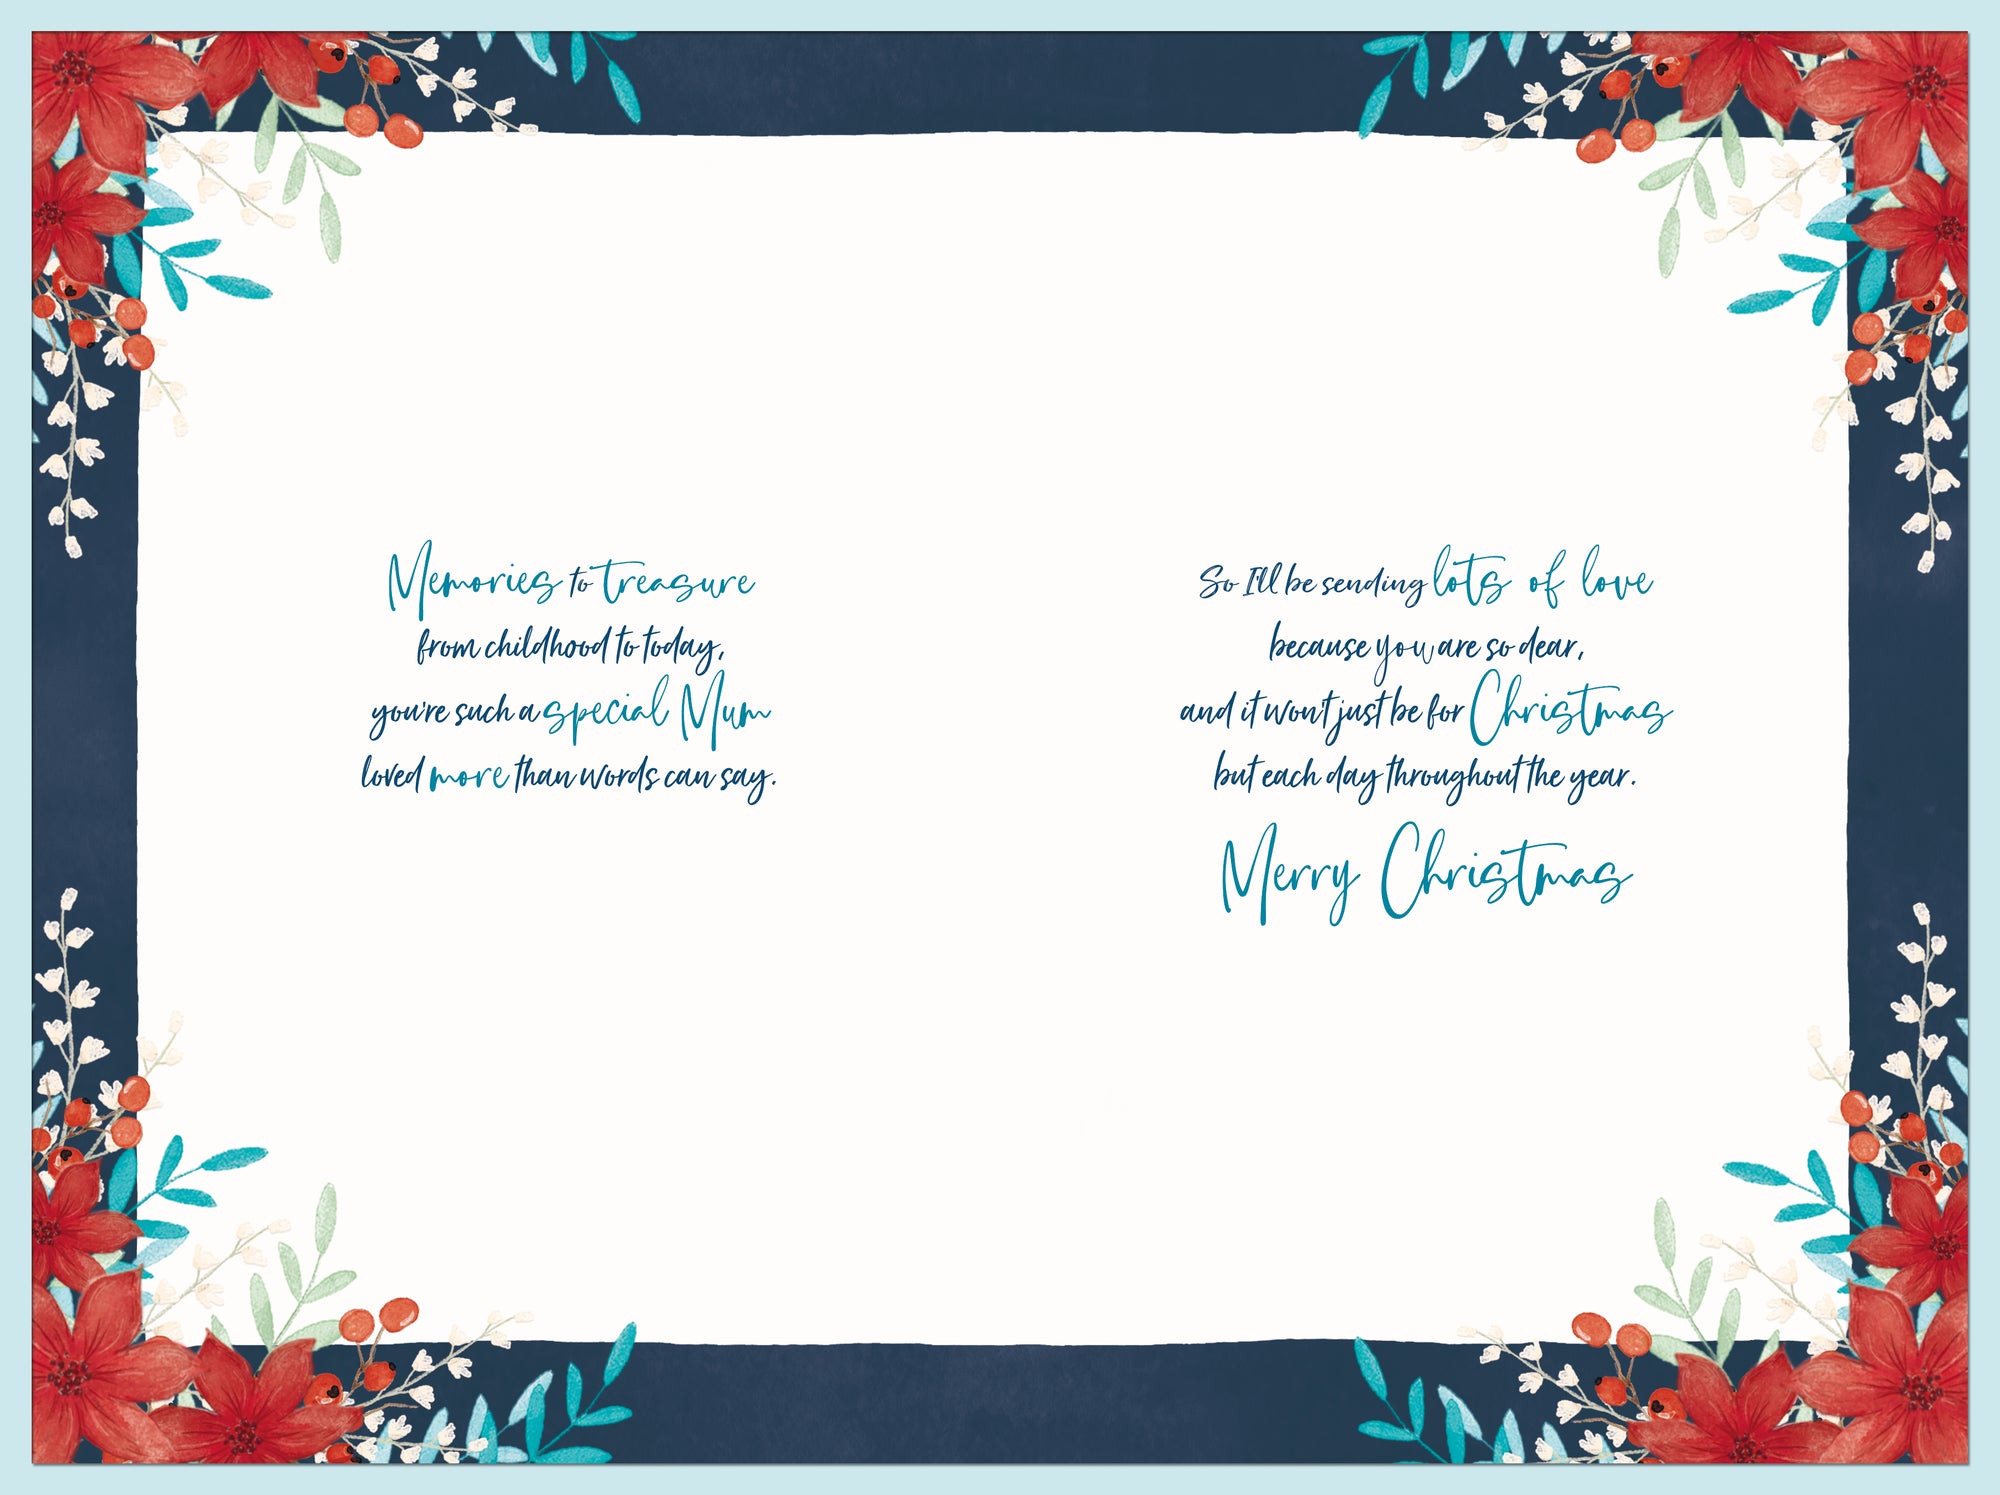 Memories to treasure
from childhood to today,
you're such a special Mum
loved more than words can say.
So I'll be sending lots of love
because you are so dear,
and it won't just be for Christmas
but each day throughout the year.
Merry Christmas